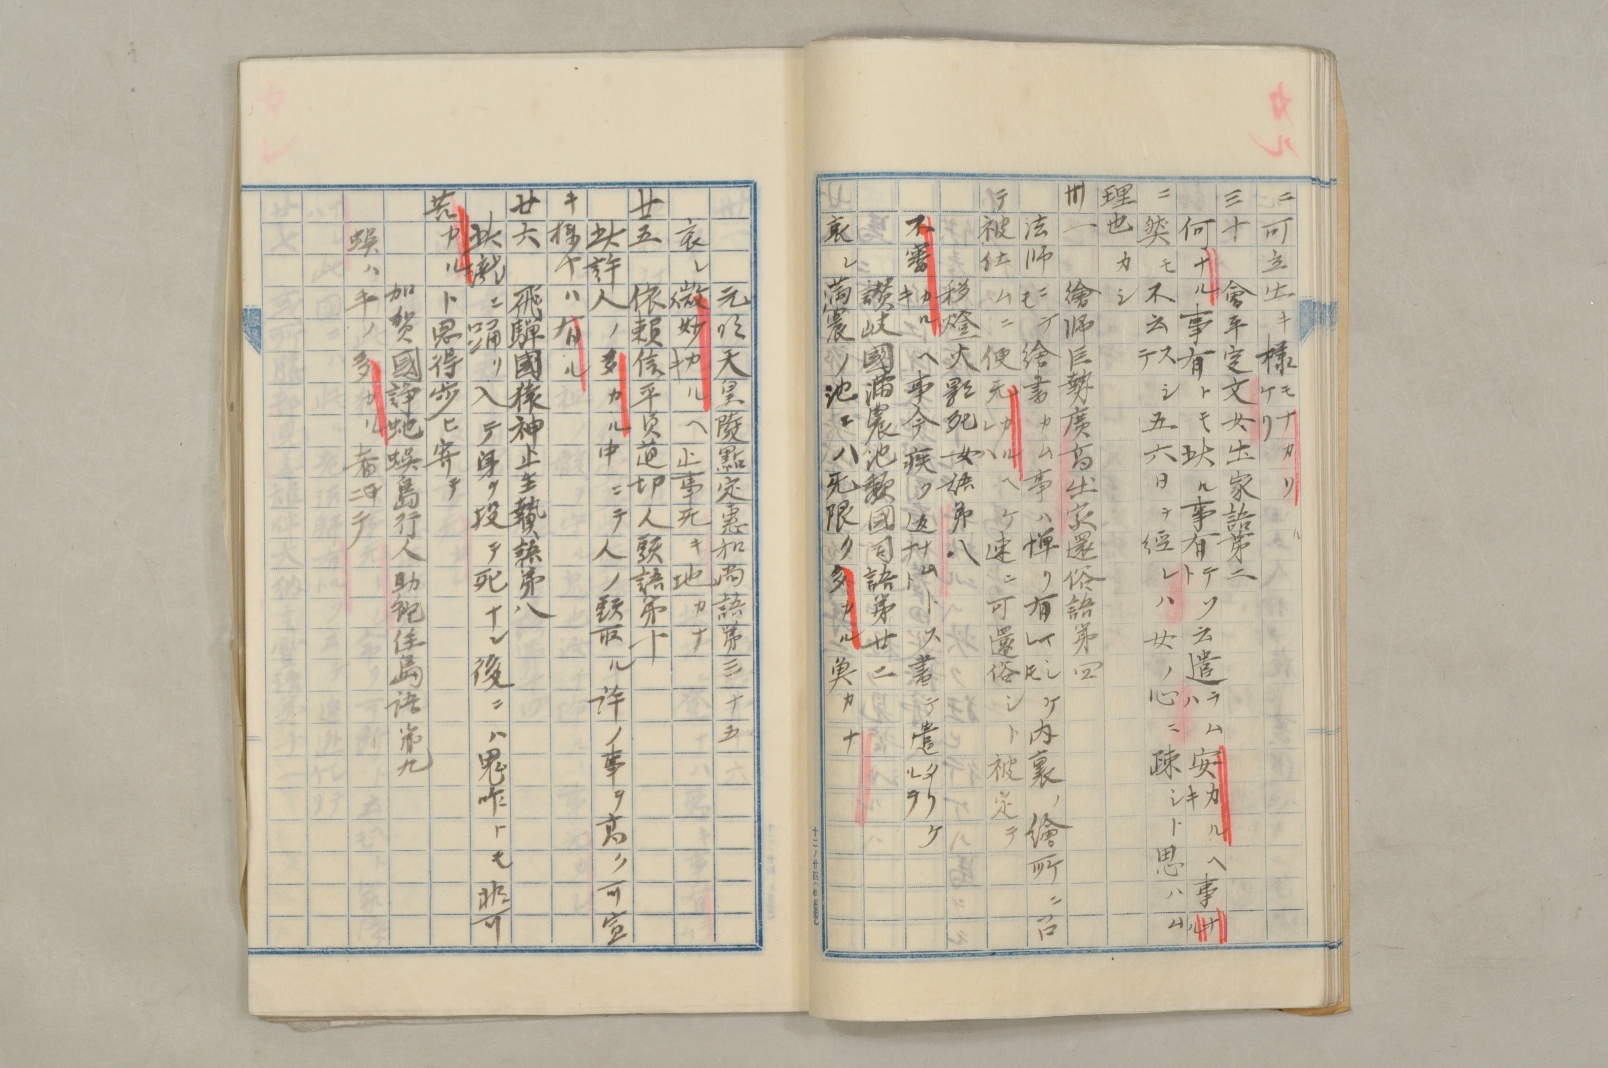 ニ可立出キ様モナカリケリ
三十 會平定文女出家語第二
何ナル事有トモ此ル事有トテソ云遣ラムハ安カルヘキ事ナル
ニ然モ不云スシテ五六日ヲ經レハ女ノ心ニ踈シト思ハム
理也カシ
卅一 繪師巨勢廣高出家還俗語第四
法師ニモテ繪書カム事ハ憚リ有レトモシケ内裏ノ繪所ニ召
テ被仕ムニ便无カルヘケレハ速ニ可還俗シト被定テ
移燈火影死女語第八
不審カルヘキ事今疾ク返ナムトス書テ遣タリケルヲ
讃岐國滿農池頽國司語第廿二
哀レ満農ノ池ニハ死限ク多カル奠カナ
元明天皇陵點定惠和尚語第三十五
哀レ微妙カルヘキ止事死キ地カナ
廿五 依頼信平貞道切人頭語第十
此許人ノ多カル中ニテ人ノ頸取ル許ノ事ヲ高ク可宣
キ様ヤハ有ル
廿六 飛驒國猿神止生贄語第八
此瀧ニ踊リ入テ身ヲ投テ死ナレ後ニハ鬼咋トモ非可
苦カルト思得歩ヒ寄テ
加賀國諍蛇蜈島行人助蛇住島語第九
蜈ハキノ多カル者ニテ